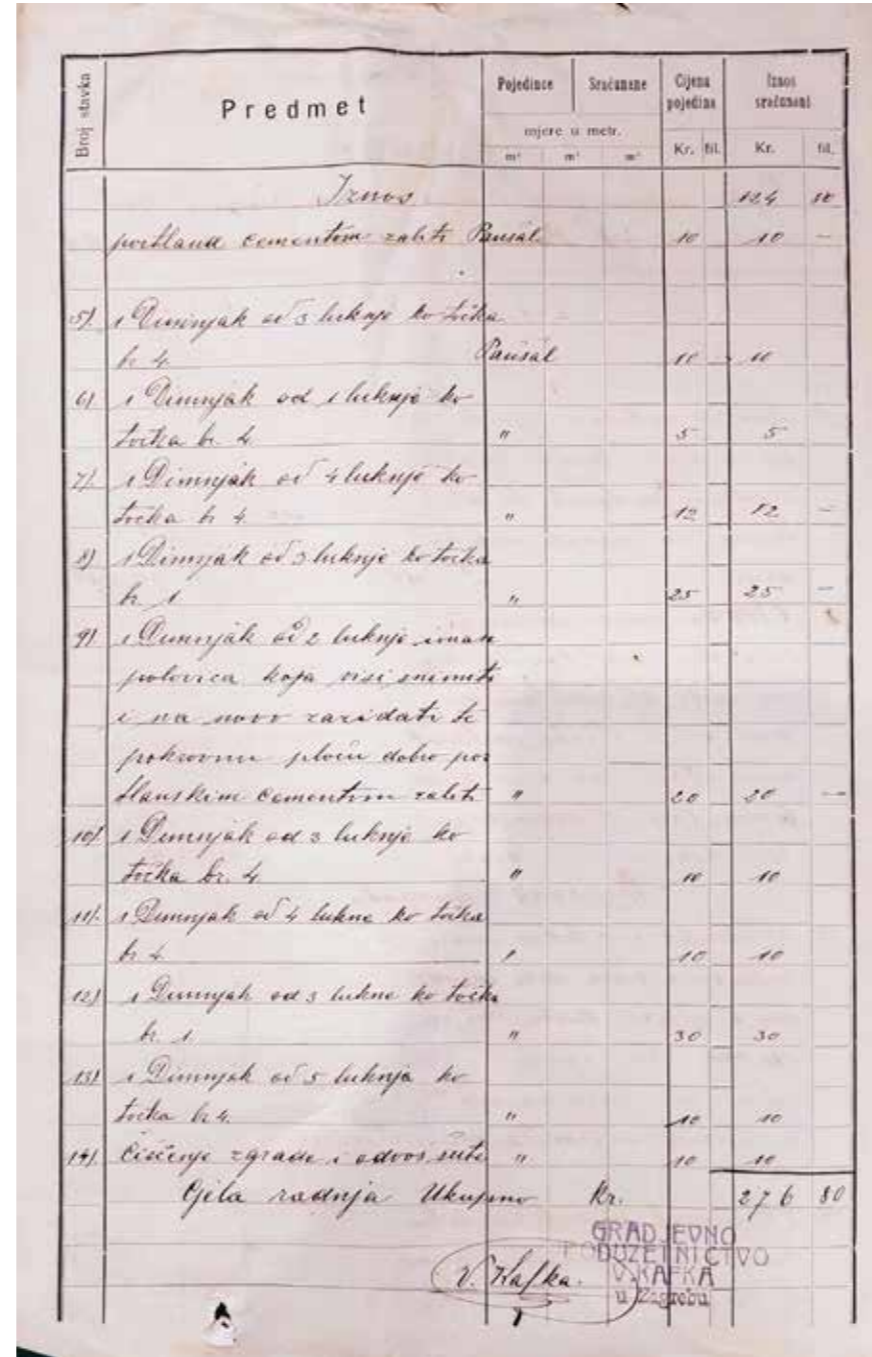 Broj stavka Predmet Pojedince Sračunane Cijena pojedina Iznos sračunani
mjere u metr.
m¹ m² m³ Kr. fil. Kr. fil.
Iznos 124 80
portland cementom zaliti Paušal 10 10 —
5). 1 Dimnjak od 3 luknje ko točka
br 4. Paušal 10 10
6) 1 Dimnjak od 1 luknje ko
točka br. 4. " 5 5
7) 1 Dimnjak od 4 luknje ko
točka br 4. " 12 12 —
8) 1 Dimnjak od 3 luknje ko točka
br 1 " 25 25 —
9) 1 Dimnjak od 2 luknje
polovica koja visi snimiti
i na novo zazidati te
pokrovnu ploču dobro por
tlanskim cementom zaliti " 20 20 —
10). 1 Dimnjak od 3 luknje ko
točka br. 4. " 10 10
11). 1 Dimnjak od 4 lukne ko točka
br 4. " 10 10
12) 1 Dimnjak od 3 lukne ko točka
br. 1. " 30 30
13) 1 Dimnjak od 5 luknja ko
točka br 4. " 10 10
14). Čišćenje zgrade i odvos šute " 10 10
Cjela radnja Ukupno Kr. 276 80
GRADJEVNO
PODUZETNICTVO
V. KAFKA
u Zagrebu
V. Kafka.